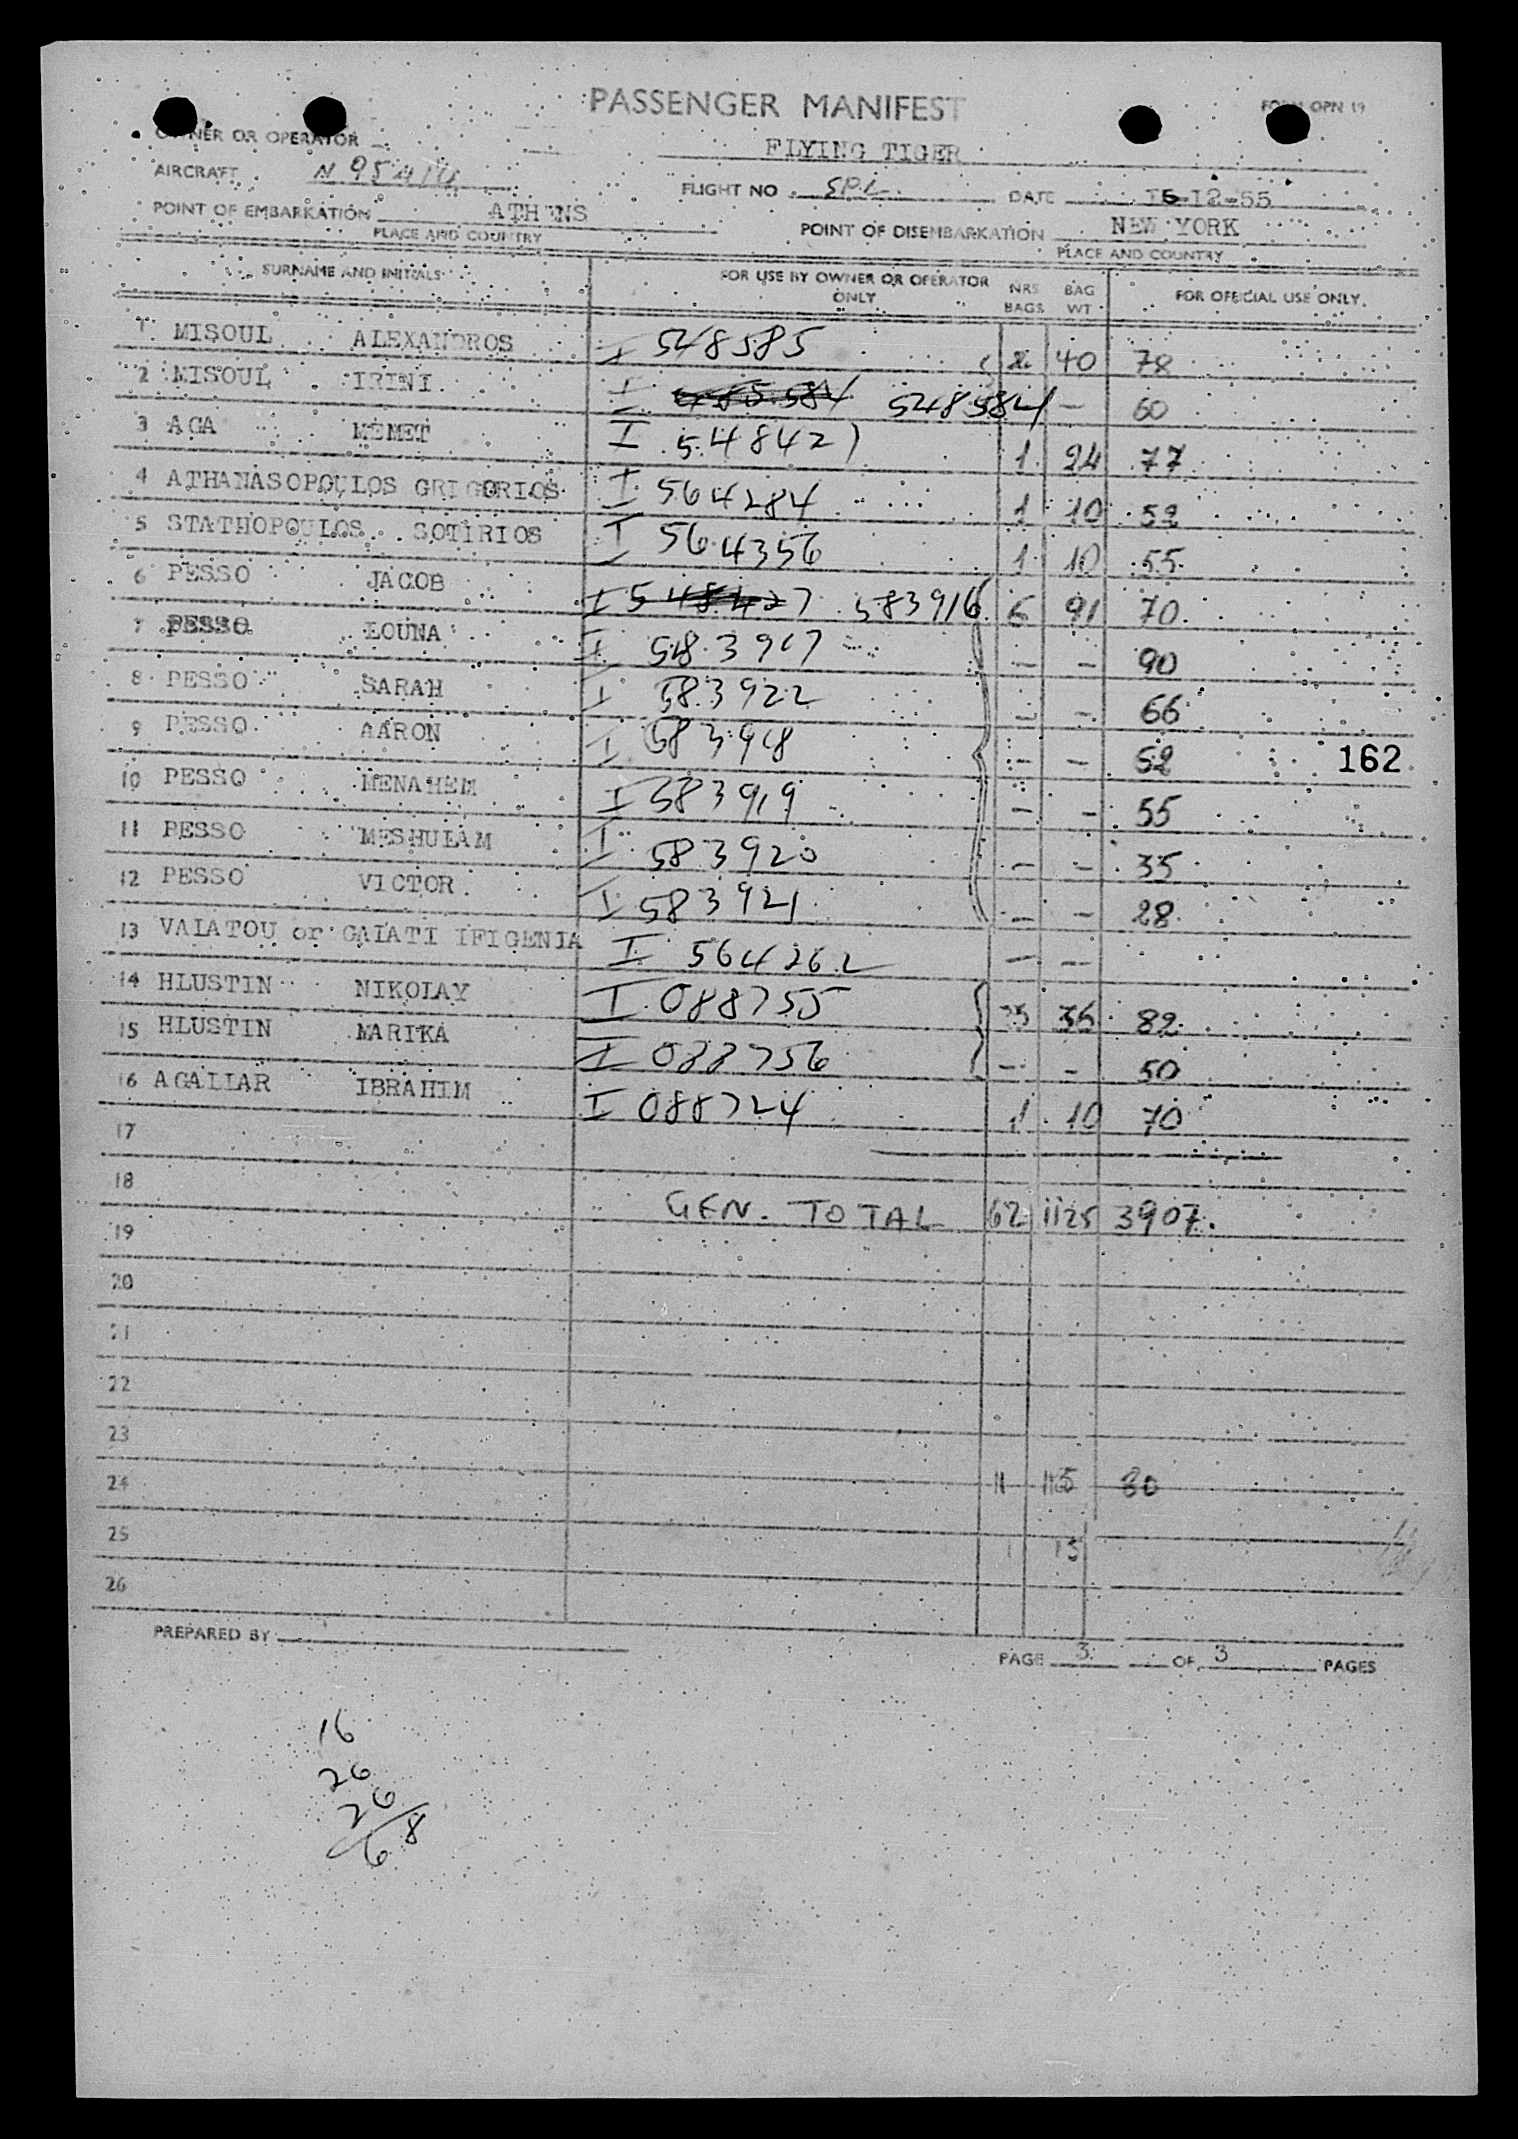 PASSENGER MANIFEST
FORM OPN 19
OWNER OR OPERATOR FLYING TIGER
AIRCRAFT FLIGHT NO SPL. DATE 16-12-55
POINT OF EMBARKATION ATHENS POINT OF DISEMBARKATION NEW YORK
PLACE AND COUNTRY PLACE AND COUNTRY
SURNAME AND INITIALS FOR USE BY OWNER OR OPERATOR ONLY NRS BAGS BAG WT FOR OFFICIAL USE ONLY.
1 MISOUL ALEXANDROS I 548585 2 40 78
2 MISOUL IRINI I 485584 548584 — 60
3 AGA MEMET I 548427 1 24 77
4 ATHANASOPOULOS GRIGORIOS I 564284 1 10 52
5 STATHOPOULOS SOTIRIOS I 564356 1 10 55
6 PESSO JACOB I 548427 583916 6 91 70
7 PESSO LOUNA I 583917 — — 90
8 PESSO SARAH I 583922 — — 66
9 PESSO AARON I 583918 — — 52
162
10 PESSO MENAHEM I 583919 — — 55
11 PESSO MESHULAM I 583920 — — 35
12 PESSO VICTOR I 583921 — — 28
13 VALATOU or GALATI IFIGENIA I 564262 — —
14 HLUSTIN NIKOLAY I 088755 3 36 82
15 HLUSTIN MARIKA I 088756 — — 50
16 AGALLAR IBRAHIM I 088724 1 10 70
17
18
GEN. TOTAL 62 1125 3907.
19
20
21
22
23
24 11 115 80
25 1 15
26
PREPARED BY
PAGE 3 OF 3 PAGES
16
26
26
68